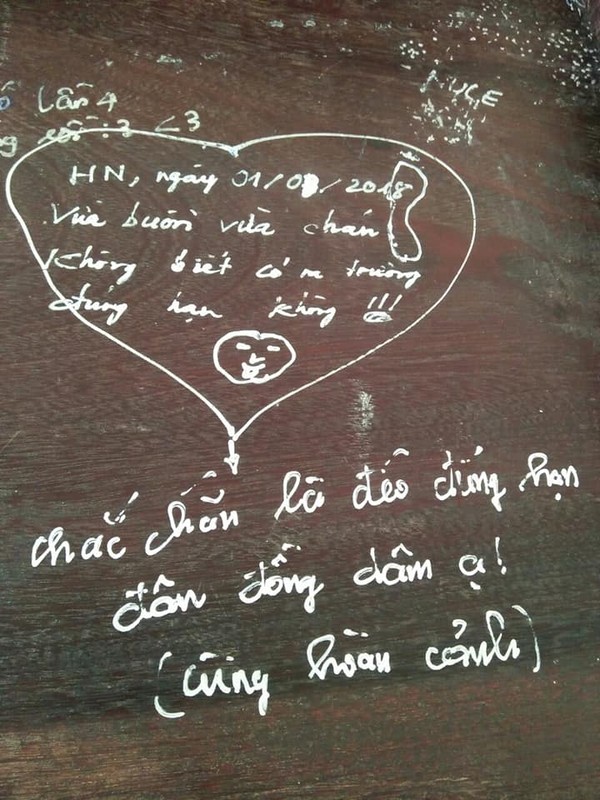 lần 4
:3 <3
NUCE
HN, ngày 01/03/2018
Vừa buồn vừa chán
Không biết có ra trường
đúng hạn không !!!
chắc chắn là đéo đúng hạn
đân đồng dâm ạ!
(cùng hoàn cảnh)